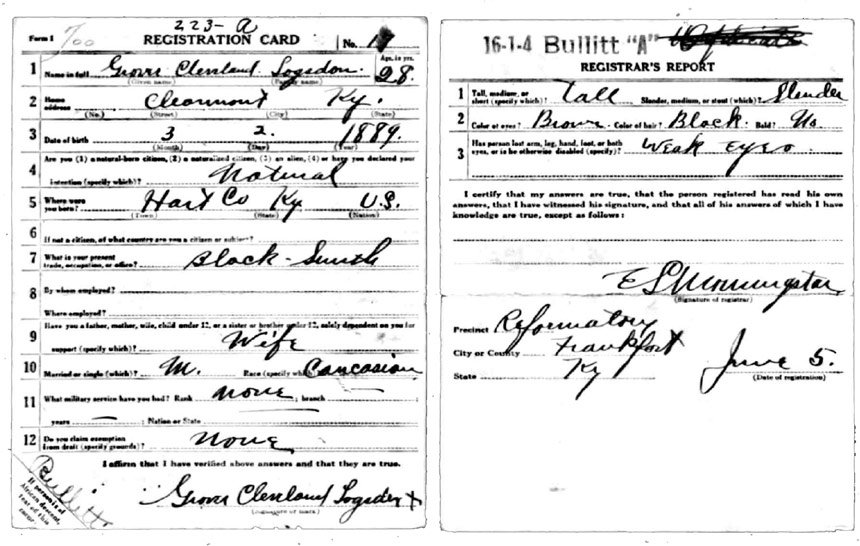 223-A
Form 1 REGISTRATION CARD No.
1 Name in full Grover Cleveland Logsdon Age, in yrs. 28
(Given name) (Family name)
2 Home address Clearmont Ky.
(No.) (Street) (City) (State)
3 Date of birth 3 2. 1889.
(Month) (Day) (Year)
4 Are you (1) a natural-born citizen, (2) a naturalized citizen, (3) an alien, (4) or have you declared your
intention (specify which)? Natural
5 Where were you born? Hart Co Ky U.S.
(Town) (State) (Nation)
6 If not a citizen, of what country are you a citizen or subject?
7 What is your present trade, occupation, or office? Black-Smith
8 By whom employed?
Where employed?
9 Have you a father, mother, wife, child under 12, or a sister or brother under 12, solely dependent on you for
support (specify which)? Wife
10 Married or single (which)? M. Race (specify which)? Caucasion
11 What military service have you had? Rank none ; branch
years ; Nation or State
12 Do you claim exemption from draft (specify grounds)? none
I affirm that I have verified above answers and that they are true.
Grover Cleveland Logsdon x
(Signature or mark)
Bullitt
If person is of
African descent,
tear off this
corner
16-1-4 Bullitt "A"
REGISTRAR'S REPORT
1 Tall, medium, or short (specify which)? Tall Slender, medium, or stout (which)? Slender
2 Color of eyes? Brown Color of hair? Black. Bald? No
3 Has person lost arm, leg, hand, foot, or both
eyes, or is he otherwise disabled (specify)? Weak eyes
I certify that my answers are true, that the person registered has read his own
answers, that I have witnessed his signature, and that all of his answers of which I have
knowledge are true, except as follows:
E S Morningstar
(Signature of registrar)
Precinct Reformatory
City or County Frankfort
State Ky June 5.
(Date of registration)